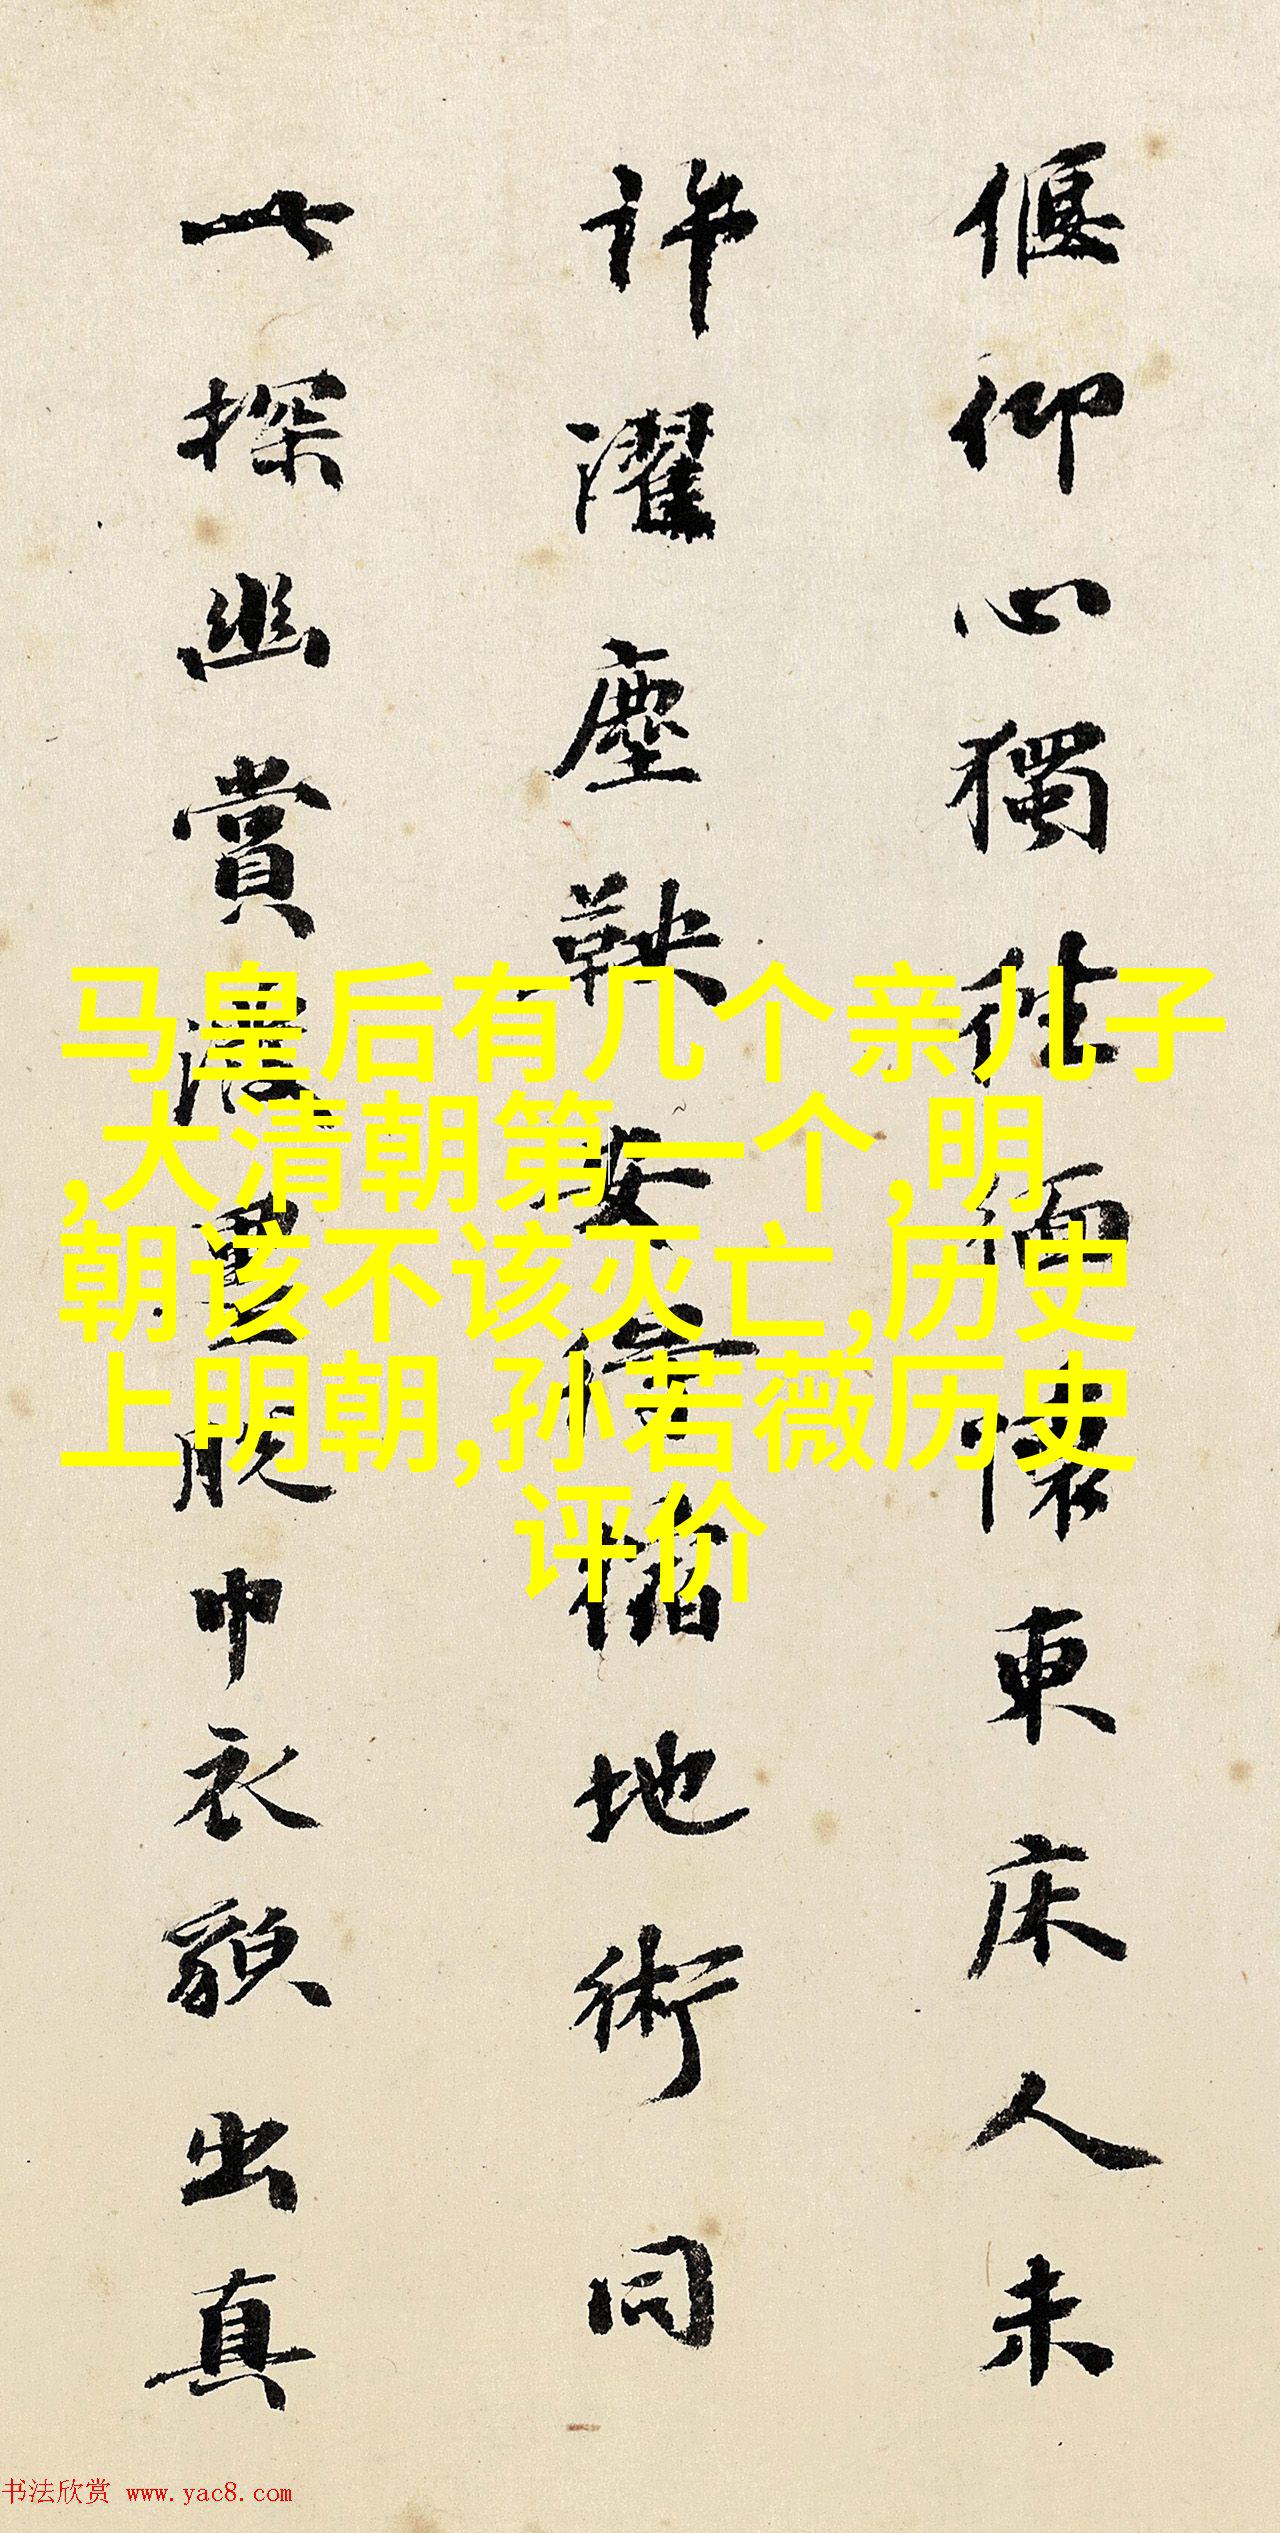 偃仰心獨往緬懷東床人未
許濯塵鞅安得縮地術同
探幽賞墨脫巾衣出真
马皇后有几个亲儿子
,大清朝第一个,明
朝该不该灭亡,历史
上明朝,孙若薇历史
评价
书法欣赏 www.yac8.com